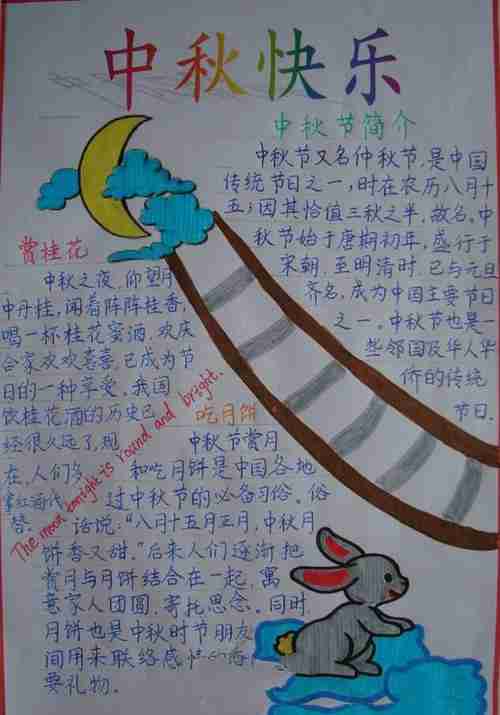 中秋快乐
中秋节简介
中秋节又名仲秋节,是中国
传统节日之一,时在农历八月十
五;因其恰值三秋之半,故名。中
秋节始于唐朝初年,盛行于
宋朝,至明清时,已与元旦
齐名,成为中国主要节日
之一。中秋节也是一
些邻国及华人华
侨的传统
节日.
赏桂花
中秋之夜,仰望月
中丹桂,闻着阵阵桂香,
喝一杯桂花蜜酒,欢庆
合家欢欢喜喜,已成为节
日的一种享受。我国
饮桂花酒的历史已
经很久远了,现
在,人们多
拿红酒代
替。
The moon tonight is round and bright.
吃月饼
中秋节赏月
和吃月饼是中国各地
过中秋节的必备习俗。俗
话说:“八月十五月正月,中秋月
饼香又甜。”后来人们逐渐把
赏月与月饼结合在一起,寓
意家人团圆,寄托思念。同时,
月饼也是中秋时节朋友
间用来联络感情
要礼物。